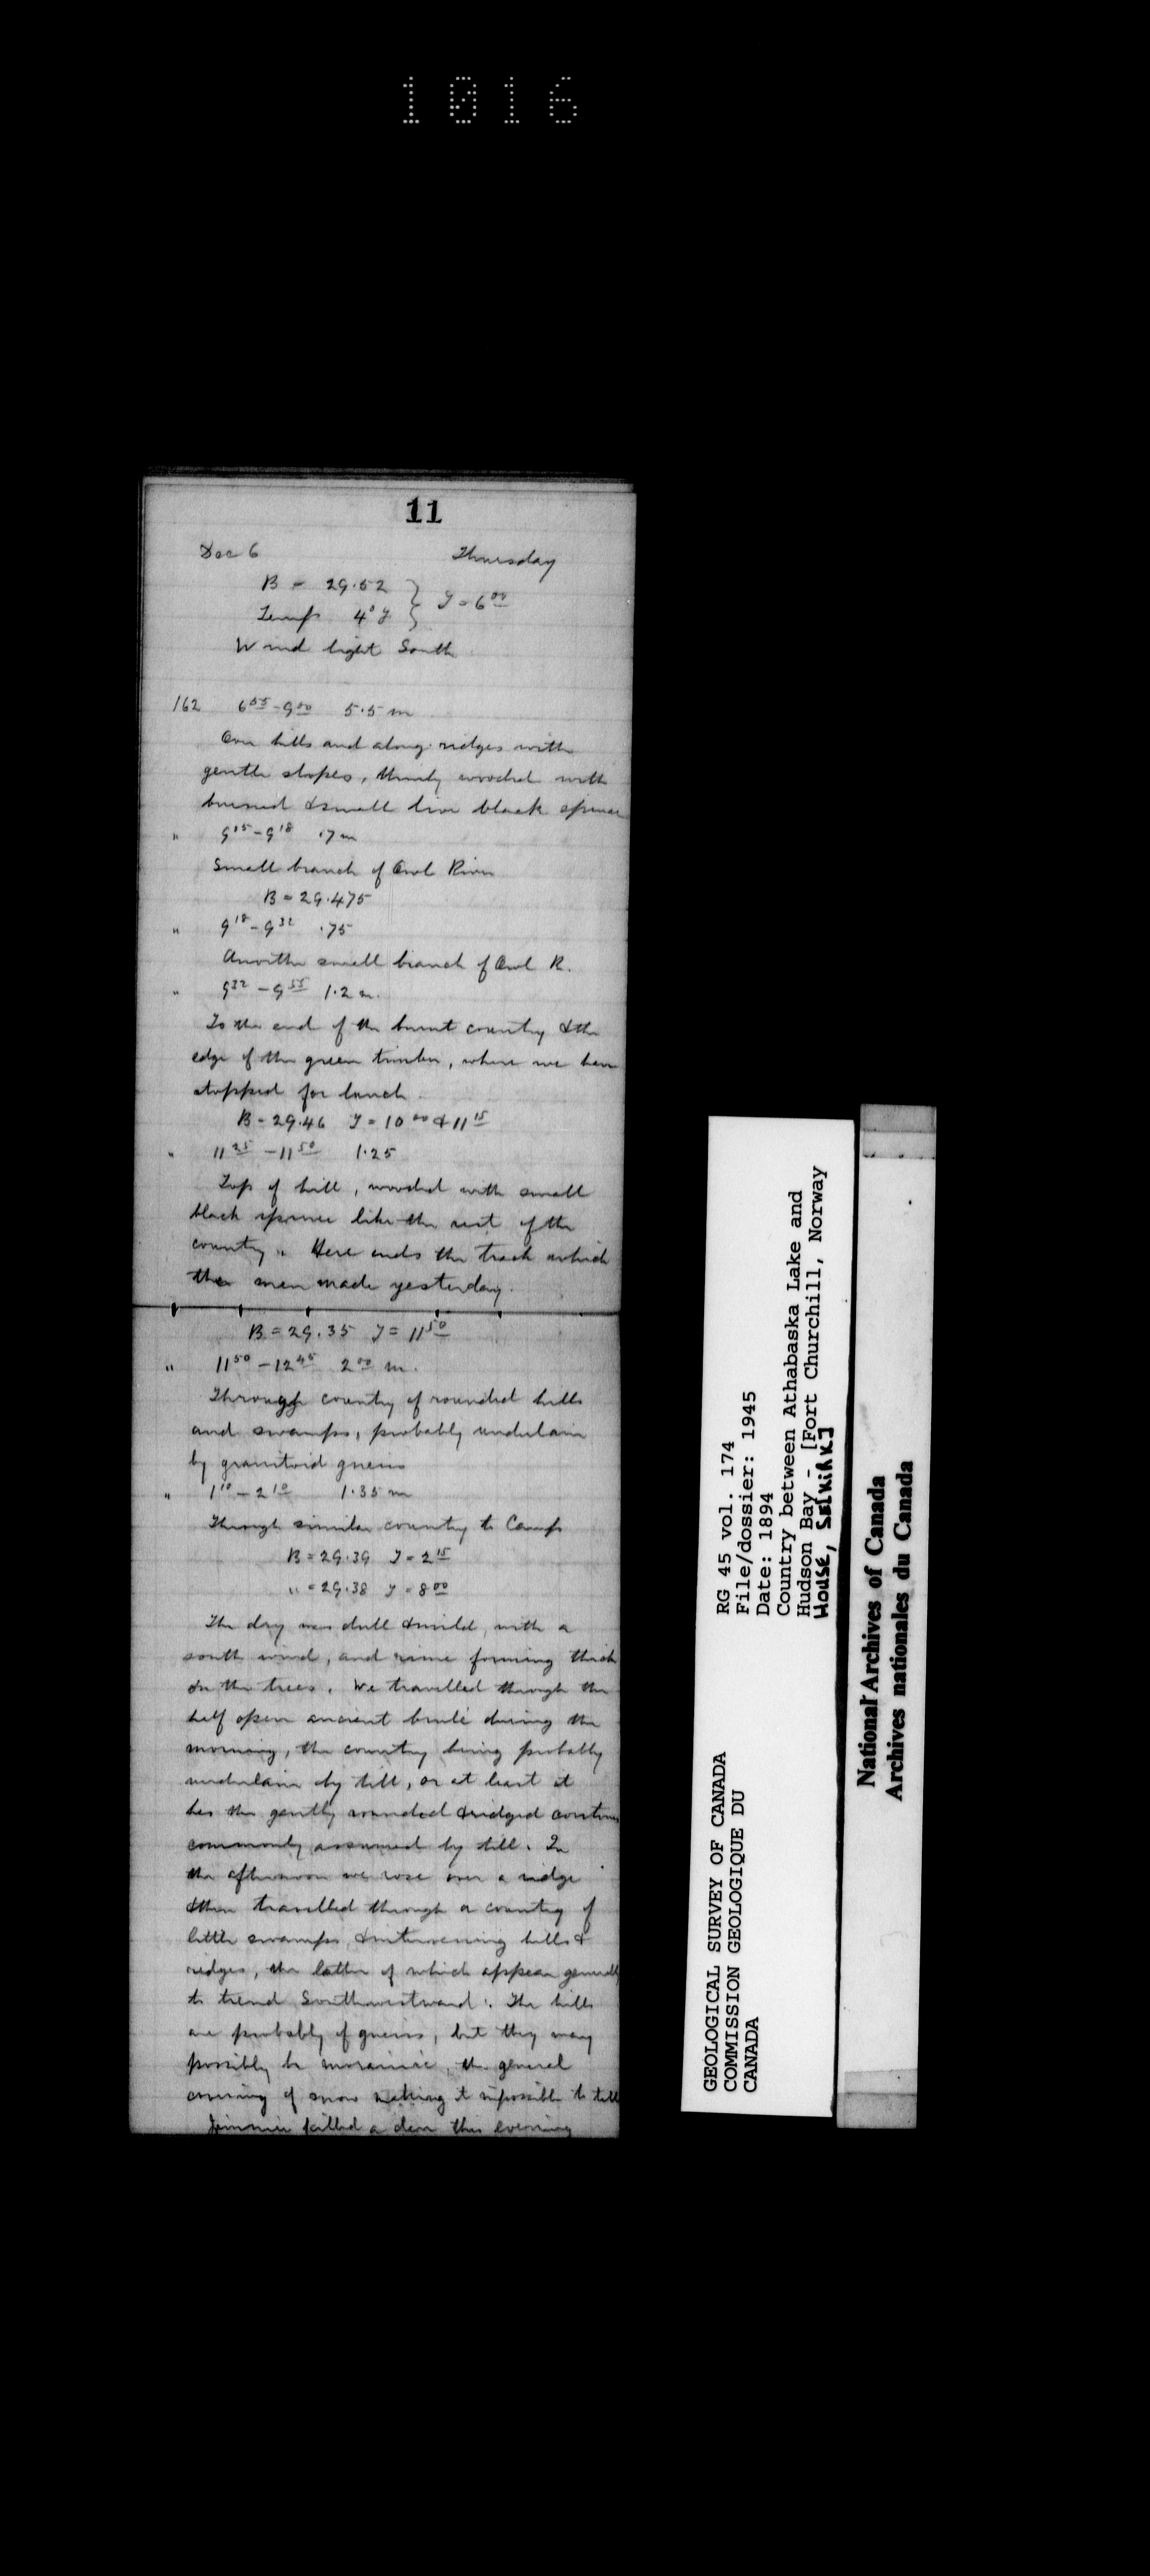 1016
11
Dec 6 Thursday
B = 29.52
Temp 4° F } T = 6 00
Wind light South
162 6 55 - 9 00 5.5 m
Over hills and along ridges with
gentle slopes, thinly wooded with
burned & small live black spruce
" 9 15 - 9 18 .7 m
Small branch of Owl River
B = 29.475
" 9 18 - 9 32 .75
Another small branch of Owl R.
" 9 32 - 9 55 1.2 m.
To the end of the burnt country & the
edge of the green timber, where we have
stopped for lunch.
B = 29.46 T = 10 00 & 11 15
" 11 25 - 11 50 1.25
Top of hill, wooded with small
black spruce like the rest of the
country. Here ends the track which
the men made yesterday.
B = 29.35 T = 11 50
" 11 50 - 12 45 2 00 m.
Through country of rounded hills
and swamps, probably underlain
by granitoid gneiss
" 1 10 - 2 10 1.35 m
Through similar country to Camp
B = 29.39 T = 2 15
" = 29.38 T = 8 00
The day was dull & mild, with a
south wind, and rime forming thick
on the trees. We travelled through the
half open ancient brulé during the
morning, the country being probably
underlain by till, or at least it
has the gently rounded & ridged contours
commonly assumed by till. In
the afternoon we rose over a ridge
& then travelled through a country of
little swamps & intervening hills &
ridges, the latter of which appear generally
to trend Southwestward. The hills
are probably of gneiss, but they may
possibly be morainic, the general
covering of snow making it impossible to tell
Jimmie killed a deer this evening
GEOLOGICAL SURVEY OF CANADA
COMMISSION GEOLOGIQUE DU
CANADA
RG 45 vol. 174
File/dossier: 1945
Date: 1894
Country between Athabaska Lake and
Hudson Bay - [Fort Churchill, Norway
House, Selkirk]
National Archives of Canada
Archives nationales du Canada